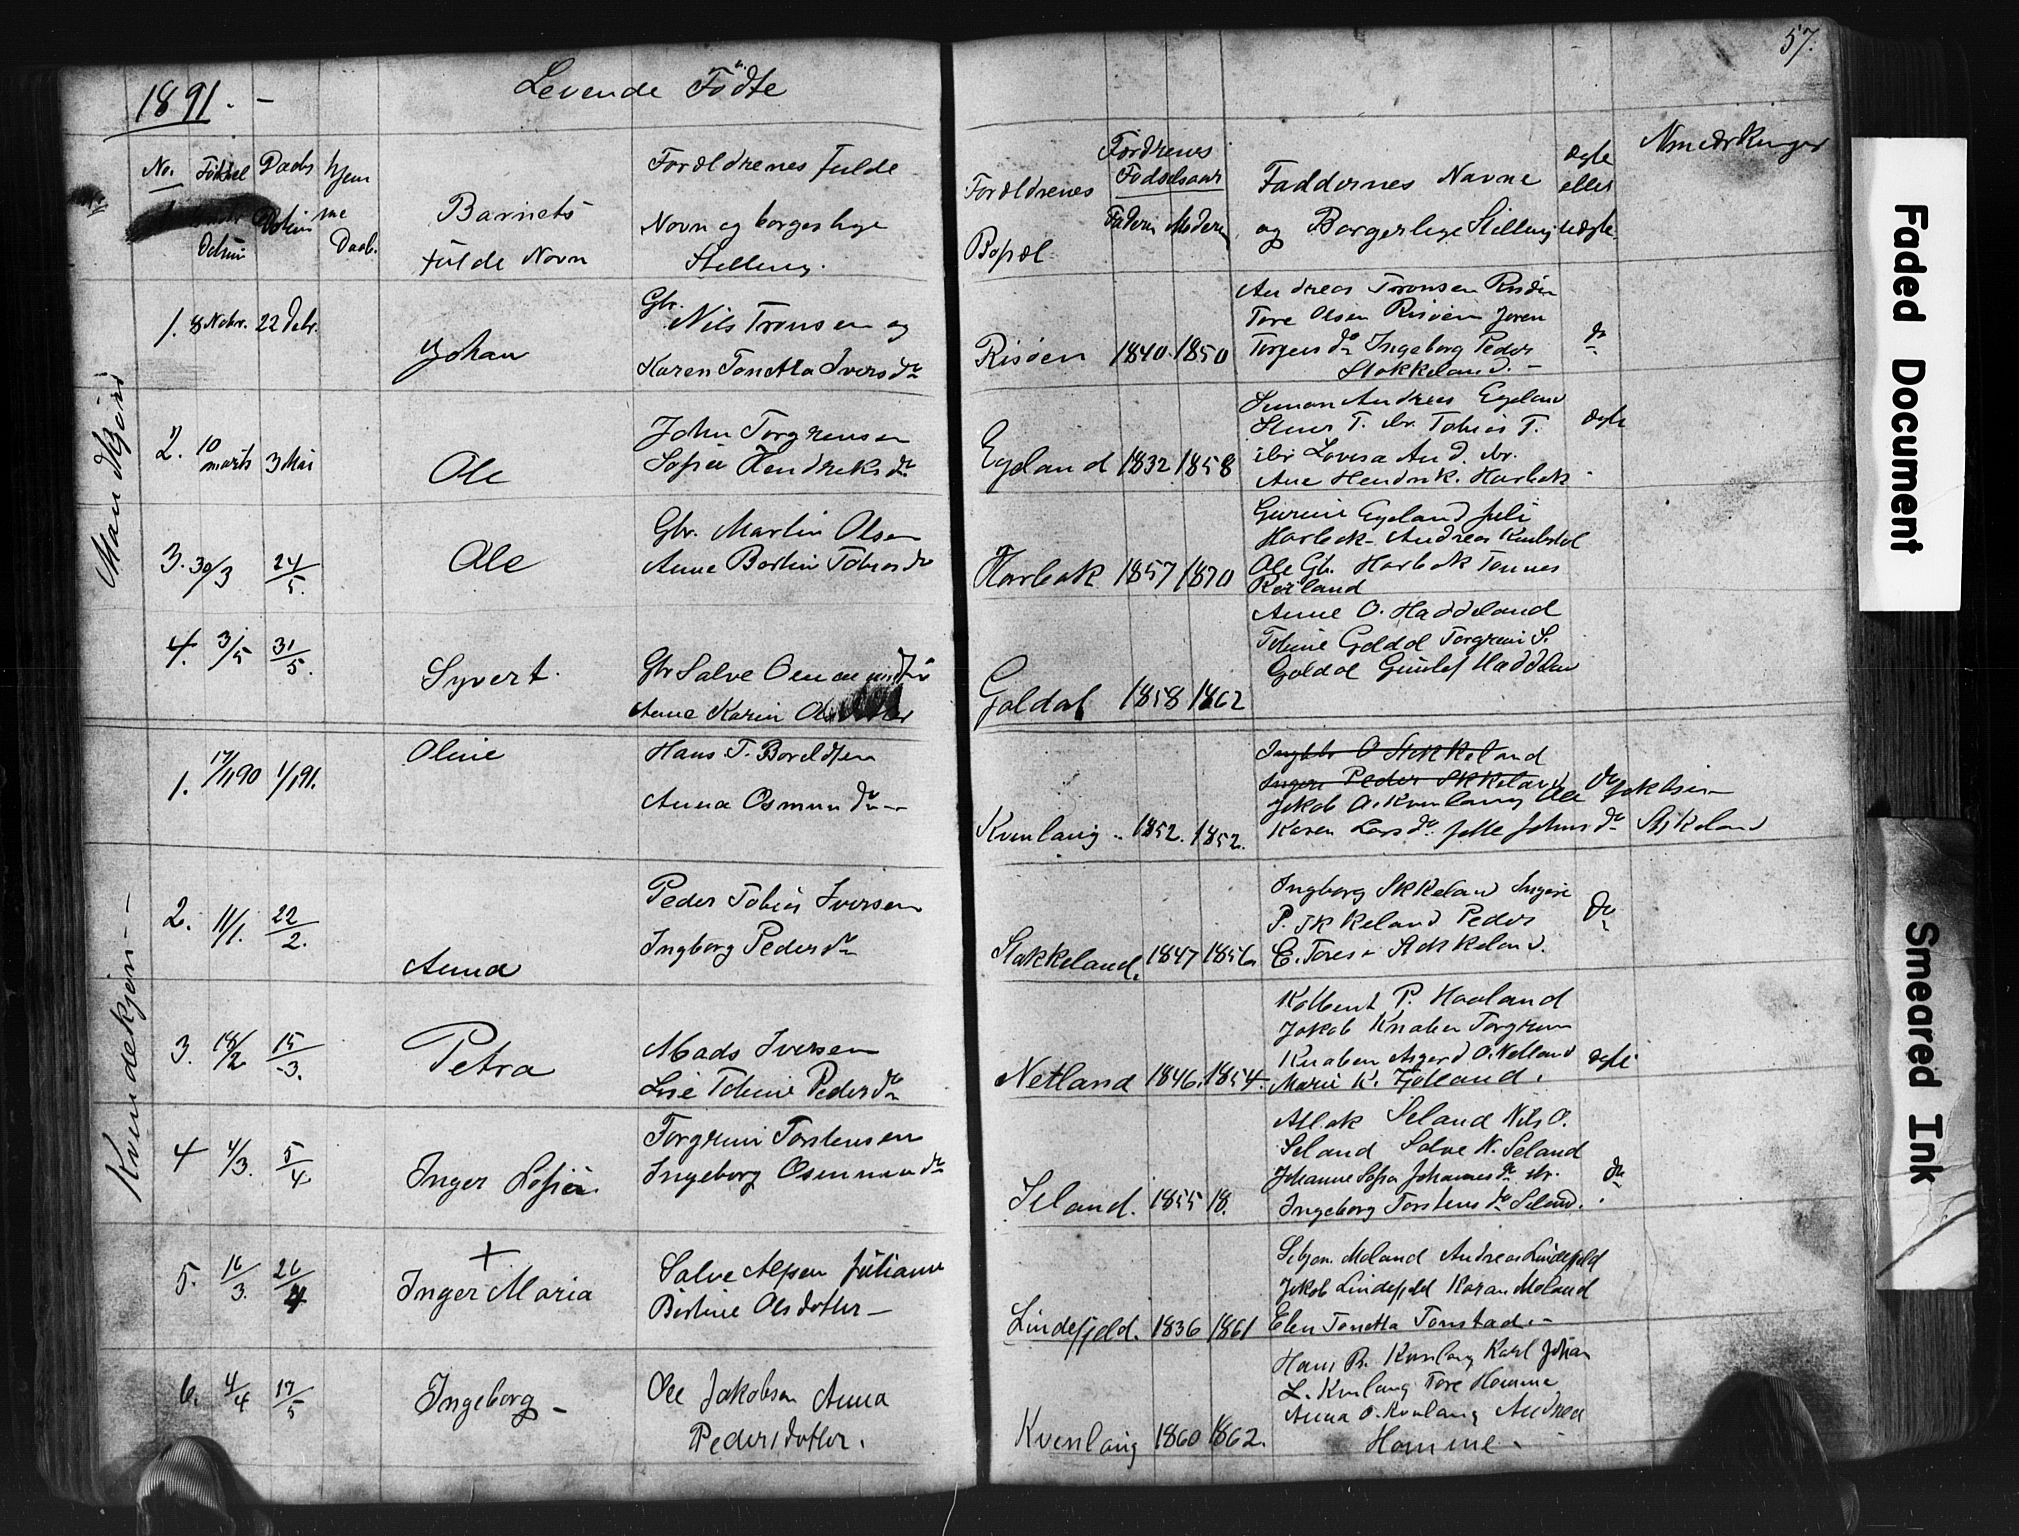 57.
1891. - Levende Födte
No. Födsel Daabs hjem
me
Daab.
Datum
Barnets
fulde Navn
Forældrenes fulde
Navn og borgerlige
Stilling.
Forældrenes
Bopæl
Fordrenes
Födselsaar
Faderen Moderen
Faddernes Navne
og Borgerlige Stilling
ægte
eller
uægte.
Anmærkninger
Mandkjön
1. 8 Nobr. 22 Debr.
Johan
Gbr. Nils Tronsen og
Karen Tonetta Ivers dr
Risöen 1840. 1850
Andreas Tronsen Risöen
Tore Olsen Risöen Joren
Torgers dr Ingeborg Peder
Stokkeland. -
do
2. 10 marts 3 Mai
Ole
John Torgrensen
Sofia Hendreks dr
Egeland 1832 1858
Simon Andreas Egeland
T. ibr. Tobias T.
ibr Lovisa And. ibr.
Ane Hendrik. Harbak
ægte
3. 30/3 24/5.
Ole
Gbr. Martin Olsen
Anne Bertin Tobias dr
Harbak 1857 1870
Egeland Juli
Harbak Andreas
Ole Gb. Harbak Tonnes
Rörland
4. 3/5 31/5.
Syvert.
Gbr Salve Osmundsen
Anne Karin Olsdotter
Goldal 1858 1862
Anne O. Haddeland
Tobine Goldal Torgrim S.
Goldal Gunlef Haddelan
Kvindekjön -
1. 17/11 90 1/1 91.
Oline
Hans T. Boreldsen
Anna Osmun dr
Kvenlang .. 1852. 1852.
O Stokkeland
Peder Skkeland do
Jakob O. Kvenlang Ole Jakobsen
Karen Lars dr Jelle Johns dr Stkeland
2. 11/1. 22/2.
Anna
Peder Tobias Iversen
Ingborg Peders dr
Stokkeland. 1847 1856
Ingborg Skkeland Inger
P. Stkkeland Peder
E. Tores Stokkeland.
do
3. 18/2 15/3.
Petra
Mads Iversen
Lise Tobine Peders dr
Netland 1846. 1854.
Kolbent P. Haaland
Jakob Knaben Torgrim
Knaben Asgerd O. Netland
Marie K. Fjotland.
ægte
4 4/3. 5/4
Inger Lofia
Torgrim Torstensen
Ingeborg Osmun dr
Seland. 1855 18.
Atlak Seland Nils O.
Seland Salve N. Seland
Johanne Sofia Johannes dr ibr.
Ingeborg Torstens dr Seland.
do
5. 16/3. 26/4
+
Inger Maria
Salve Alfsen Juliane
Birtine Olsdotter -
Lindefjeld. 1836 1861
Moland Andreas Lindefjeld
Jakob Lindefjeld Karan Moland
Elen Tonetta Tonstad. -
6. 4/4 17/5
Ingeborg -
Ole Jakobsen Anna
Pedersdotter.
Kvenlang 1860 1862.
Hans B. Kvenlang Karl Johan
L. Kvnlang Tore Homme
Anna O. Kvenlang Andrea
Homme -
Faded Document
Smeared Ink